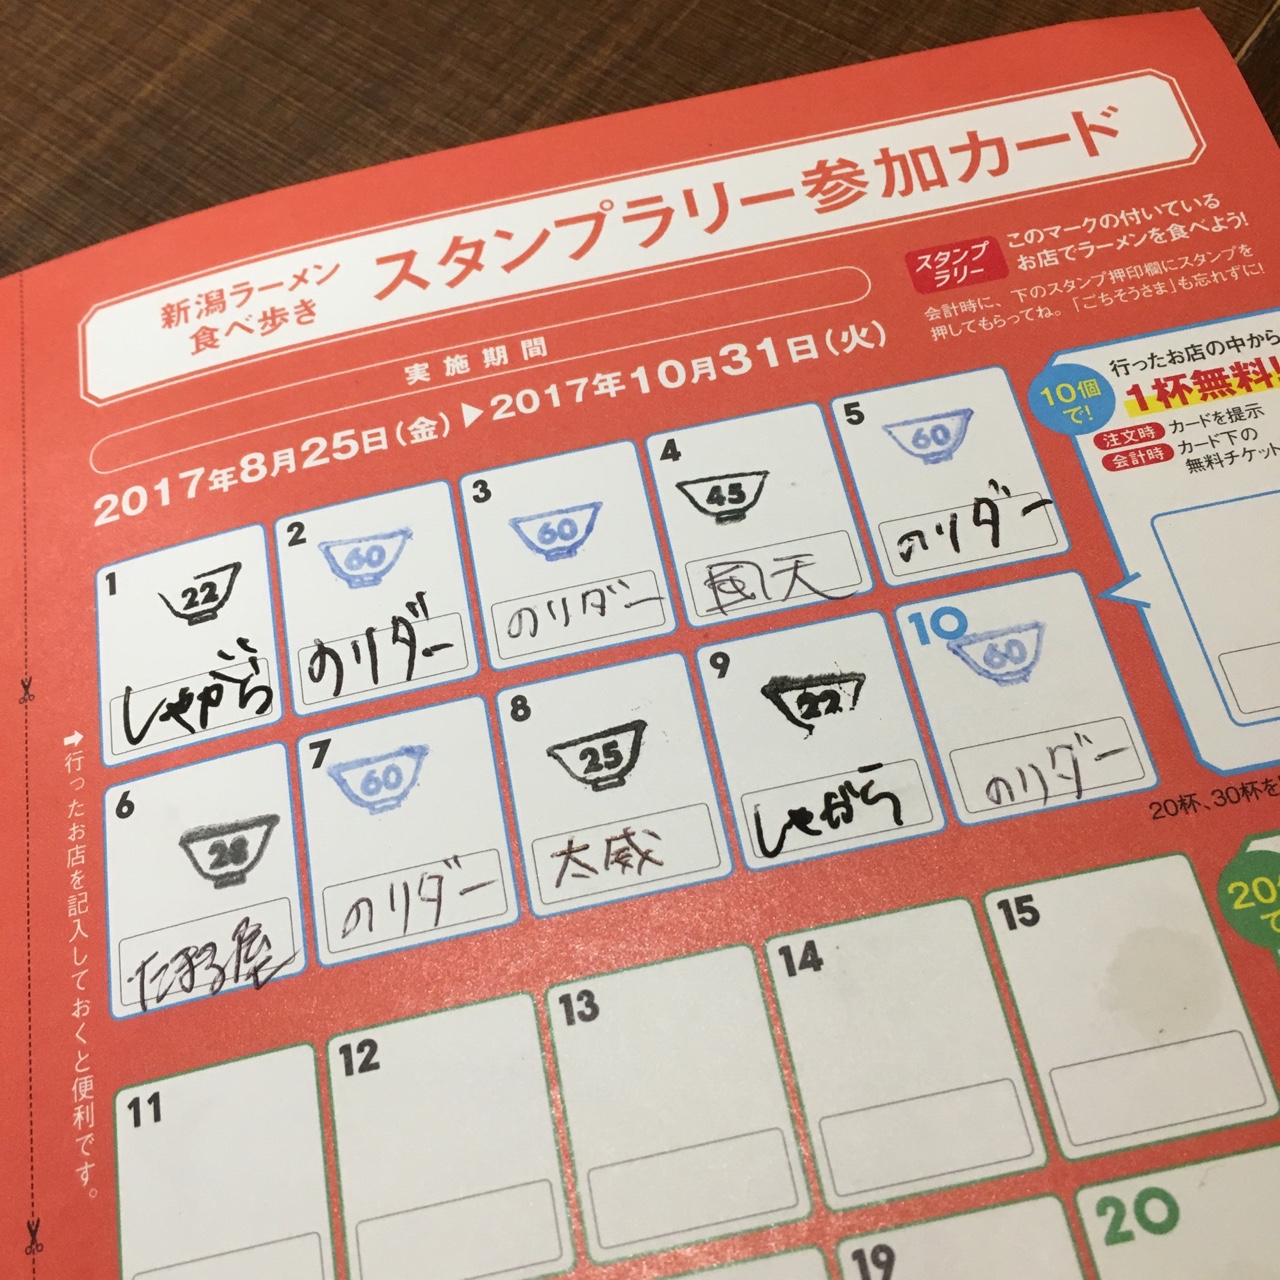 新潟ラーメン
食べ歩き
スタンプラリー参加カード
実施期間
2017年8月25日(金)▶2017年10月31日(火)
スタンプ
ラリー
このマークの付いている
お店でラーメンを食べよう!
会計時に、下のスタンプ押印欄にスタンプを
押してもらってね。「ごちそうさま」も忘れずに!
10個
で!
行ったお店の中から
1杯無料!
注文時 カードを提示
会計時 カード下の
無料チケット
1
22
しゃがら
2
60
のりダー
3
60
のりダー
4
45
5
60
のりダー
6
たまる屋
7
60
のりダー
8
25
太威
9
22
しゃがら
10
60
のりダー
20杯、30杯を
11
12
13
14
15
20
で
19
20
➡行ったお店を記入しておくと便利です。